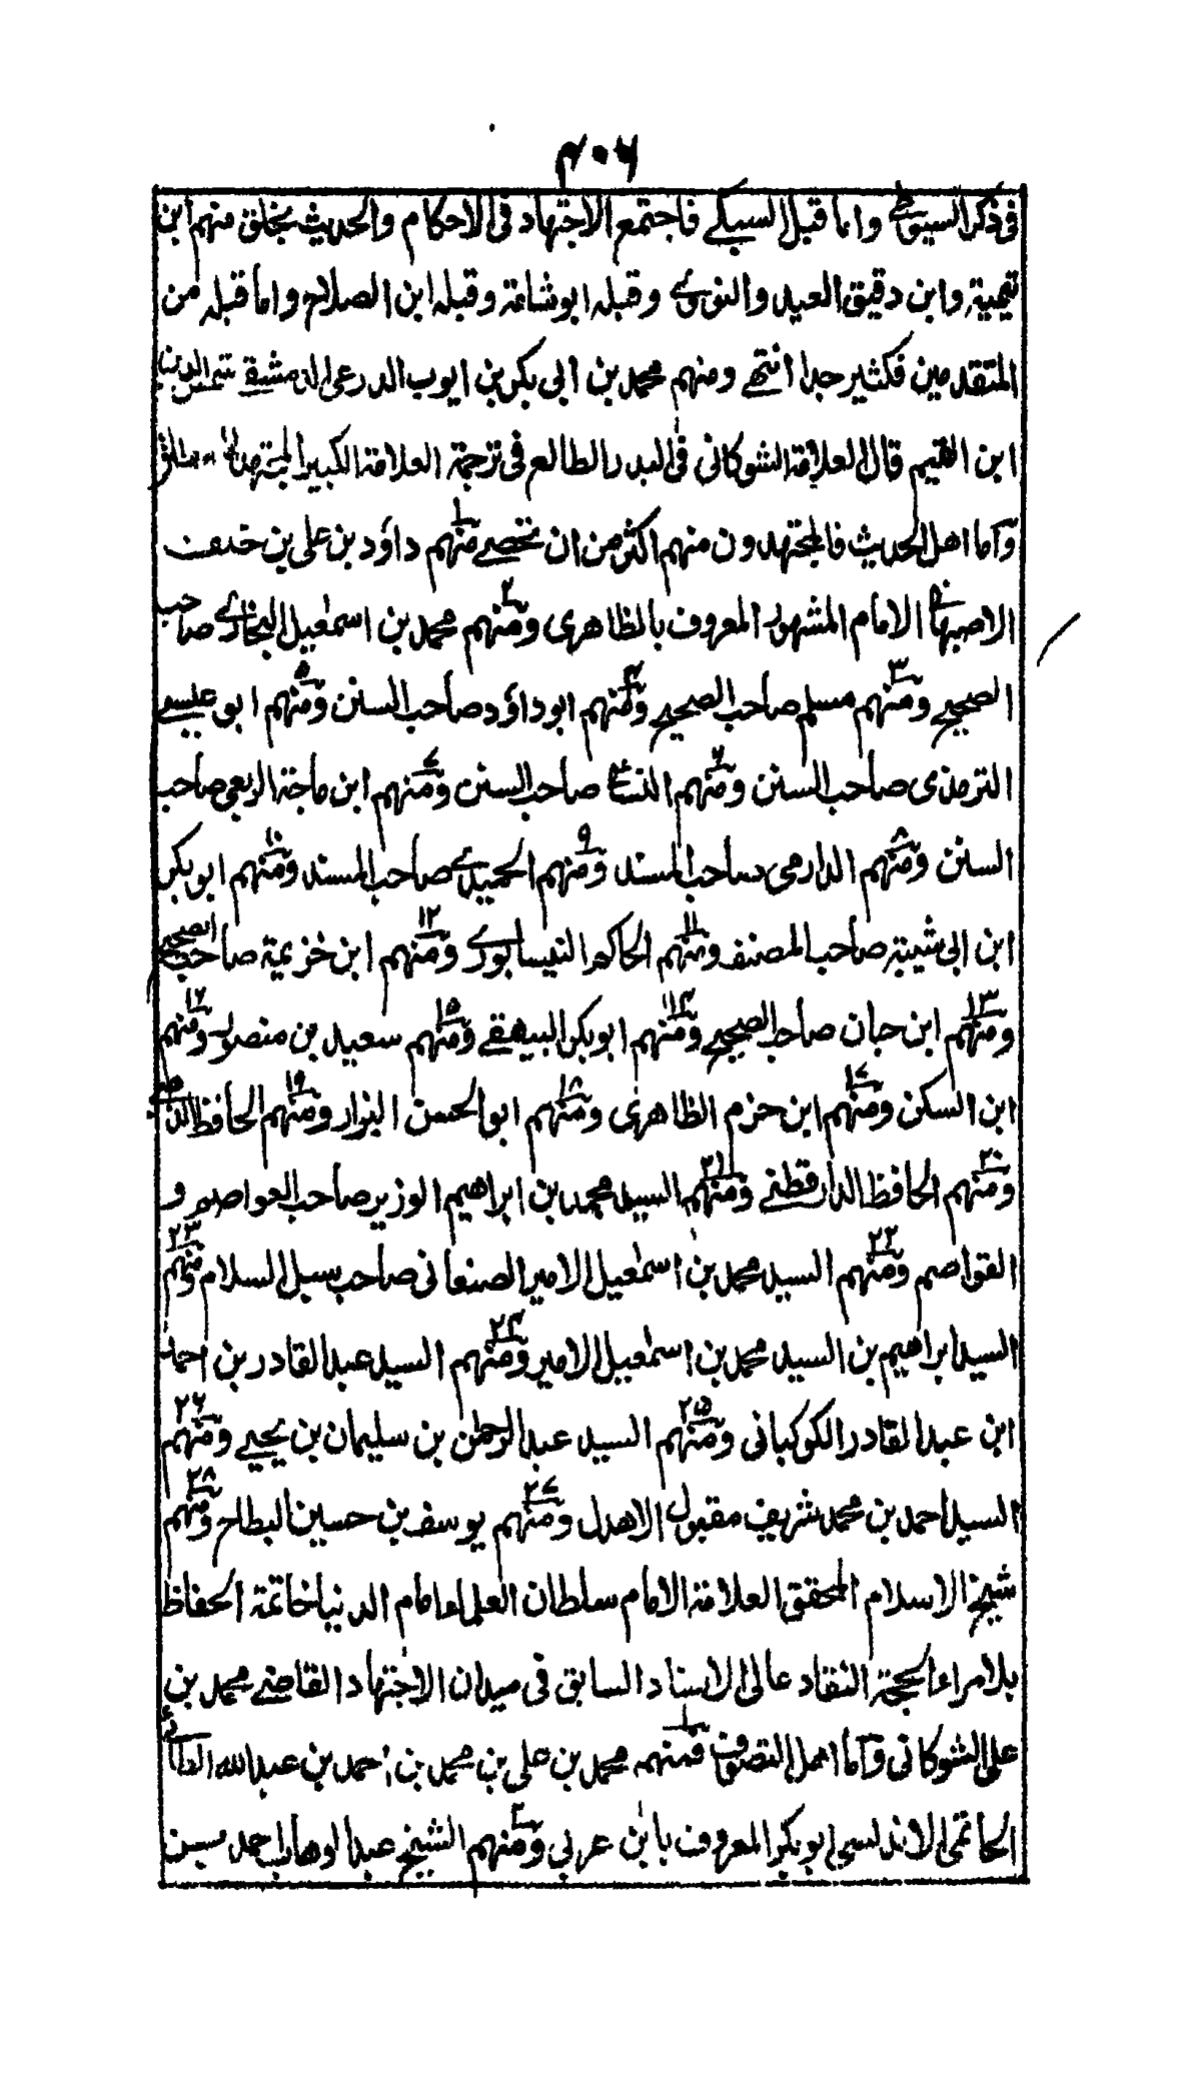 ۴۰۶
فى ذكر السيوطى واما قبل السبكے فاجتمع الاجتهاد فى الاحكام والحديث بخلق منهم ابن
تيمية وابن دقيق العيد والنووے وقبله ابو شامة وقبله ابن الصلاح واما قبله من
المتقدمين فكثير جدا انتهے ومنهم محمد بن ابى بكر بن ايوب الدرعى الدمشقے شمس الدين
ابن القيم قال العلامة الشوكانى فى البدر الطالع فى ترجمة العلامة الكبير المجتهد المطلق
وَاما اهل الحديث فالمجتهدون منهم اكثر من ان تحصے فمنهم ۱ داؤد بن على بن خلف
الاصبهانى الامام المشهور المعروف بالظاهرى ومنهم ۲ محمد بن اسمٰعيل البخارے صاحب
الصحيح ومنهم ۳ مسلم صاحب الصحيح ومنهم ۴ ابو داؤد صاحب السنن ومنهم ۵ ابو عيسے
الترمذى صاحب السنن ومنهم ۶ النسائى صاحب السنن ومنهم ۷ ابن ماجة الربعى صاحب
السنن ومنهم ۸ الدارمى صاحب المسند ومنهم ۹ الحميدے صاحب المسند ومنهم ۱۰ ابو بكر
ابن ابى شيبة صاحب المصنف ومنهم ۱۱ الحاكم النيسابورے ومنهم ۱۲ ابن خزيمة صاحب الصحيح
ومنهم ۱۳ ابن حبان صاحب الصحيح ومنهم ۱۴ ابو بكر البيهقے ومنهم ۱۵ سعيد بن منصور ومنهم ۱۶
ابن السكن ومنهم ۱۷ ابن حزم الظاهرى ومنهم ۱۸ ابو الحسن البزار ومنهم ۱۹ الحافظ
ومنهم ۲۰ الحافظ الدارقطنے ومنهم ۲۱ السيد محمد بن ابراهيم الوزير صاحب العواصم و
القواصم ومنهم ۲۲ السيد محمد بن اسمٰعيل الامير الصنعانى صاحب سبل السلام ومنهم ۲۳
السيد ابراهيم بن السيد محمد بن اسمٰعيل الامير ومنهم ۲۴ السيد عبد القادر بن احمد
ابن عبد القادر الكوكبانى ومنهم ۲۵ السيد عبد الرحمٰن بن سليمان بن يحيے ومنهم ۲۶
السيد احمد بن محمد شريف مقبول الاهدل ومنهم ۲۷ يوسف بن حسين البطاح ومنهم ۲۸
شيخ الاسلام المحقق العلامة الامام سلطان العلماء امام الدنيا خاتمة الحفاظ
بلا مراء الحجة النقاد عالى الاسناد السابق فى ميدان الاجتهاد القاضے محمد بن
على الشوكانى وَاما اهل التصوف فمنهم ۱ محمد بن على بن محمد بن احمد بن عبد الله الطائى
الحاتمى الاندلسى ابو بكر المعروف بابن عربى ومنهم ۲ الشيخ عبد الوهاب احمد